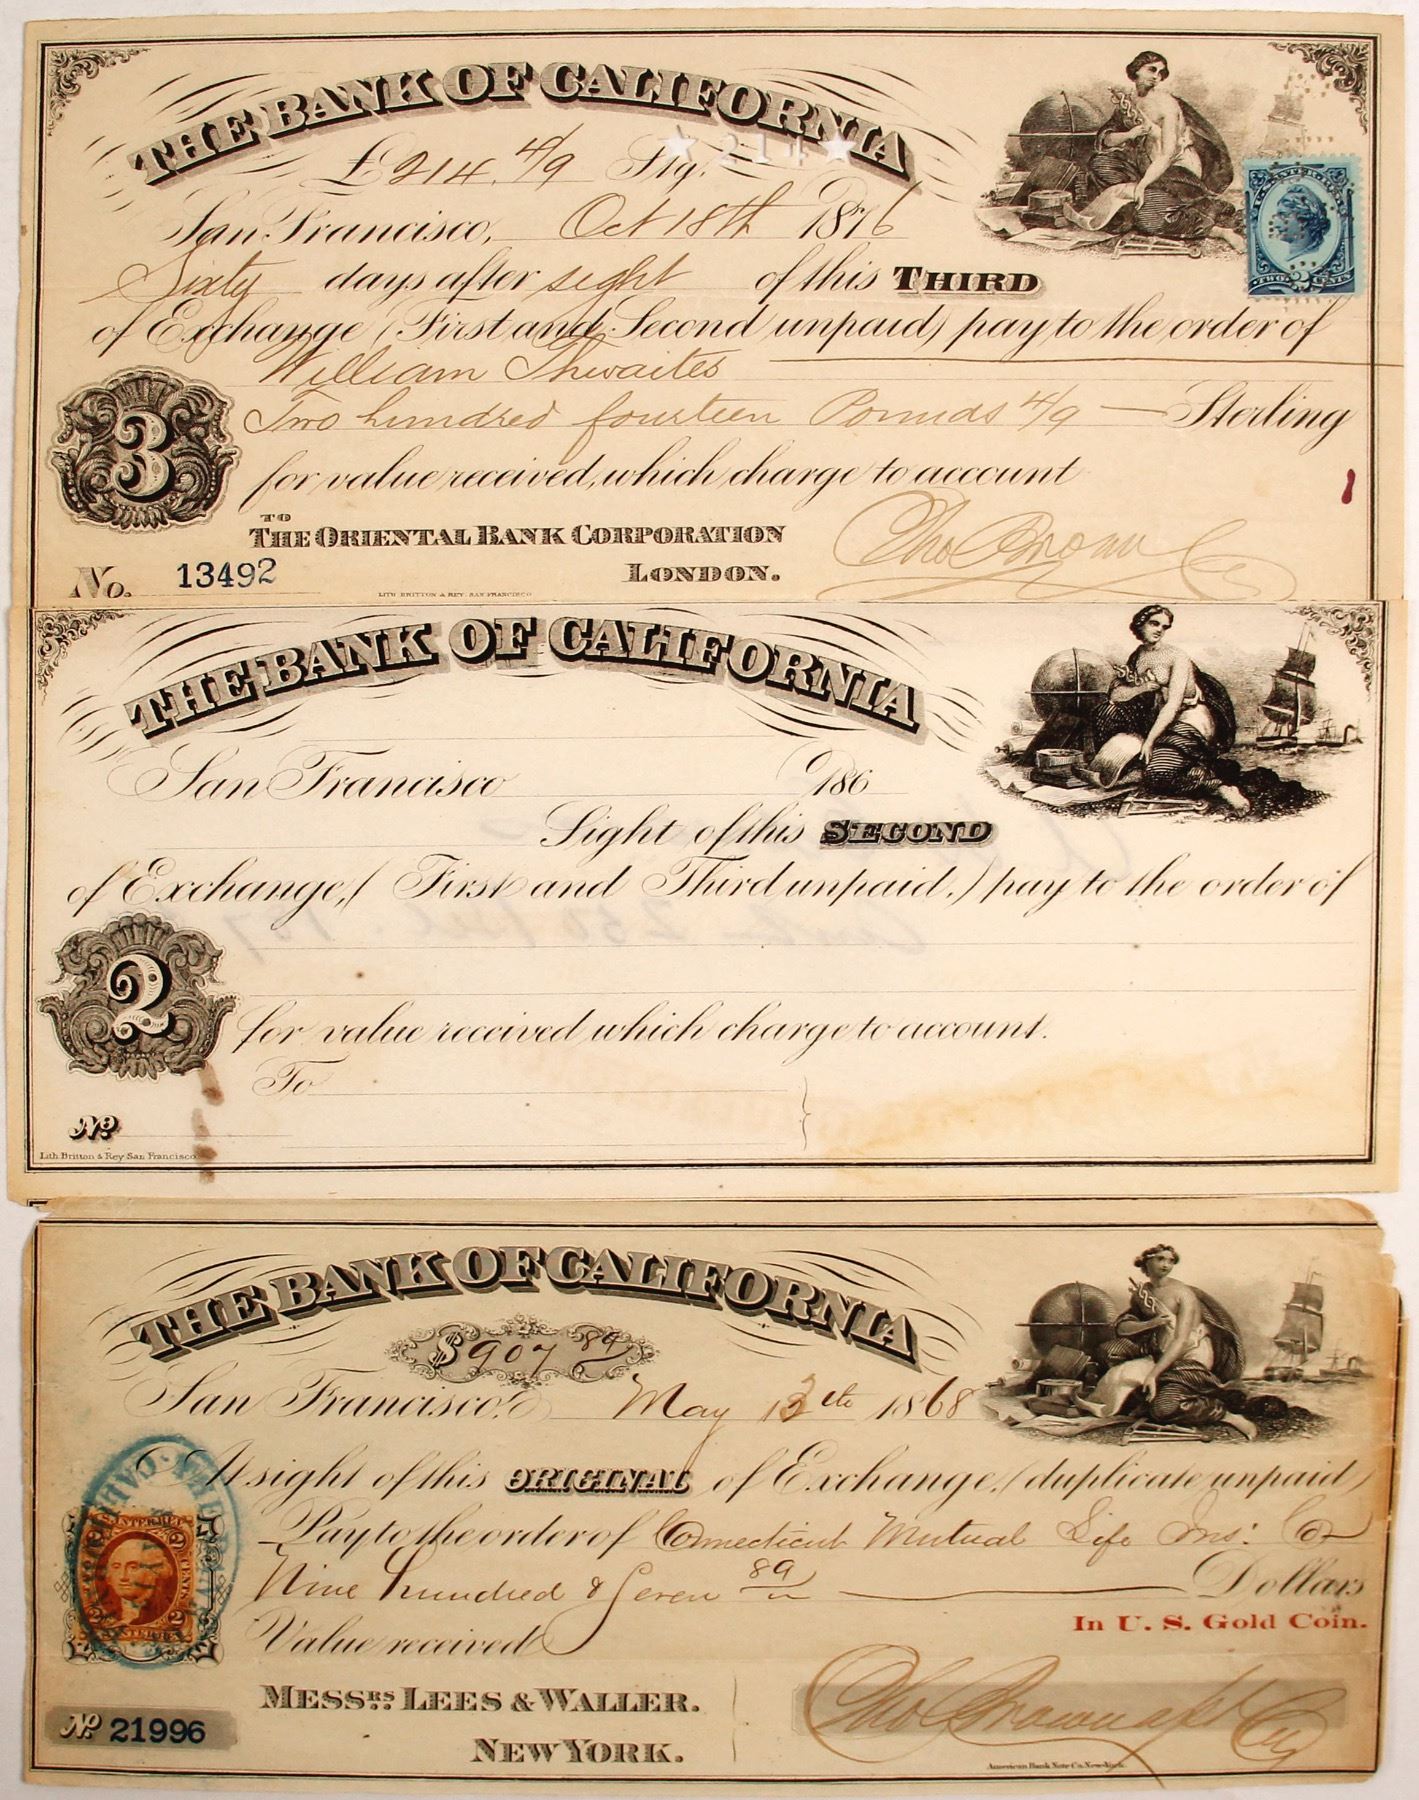 THE BANK OF CALIFORNIA
£214. 4/9 Stg. ★214★
San Francisco, Oct 18th 1876
Sixty days after sight of this THIRD
TWO 2 CENTS
of Exchange (First and Second unpaid) pay to the order of
William Thwaites
Two hundred fourteen Pounds 4/9 — Sterling
3
for value received, which charge to account
TO
THE ORIENTAL BANK CORPORATION
LONDON.
Tho Brown Cy
No. 13492
LITH BRITTON & REY. SAN FRANCISCO
THE BANK OF CALIFORNIA
San Francisco 186
Sight of this SECOND
of Exchange, (First and Third unpaid,) pay to the order of
2
for value received which charge to account.
To
No
Lith. Britton & Rey San Francisco
THE BANK OF CALIFORNIA
$907 89
San Francisco, May 13th 1868
At sight of this ORIGINAL of Exchange, (duplicate unpaid)
Pay to the order of Connecticut Mutual Life Ins: Co
Nine hundred & Seven 89 — Dollars
In U. S. Gold Coin.
2 CENTS 2
Value received
MESSRS. LEES & WALLER.
NEW YORK.
No 21996
Tho Brown Cy
American Bank Note Co. New-York.